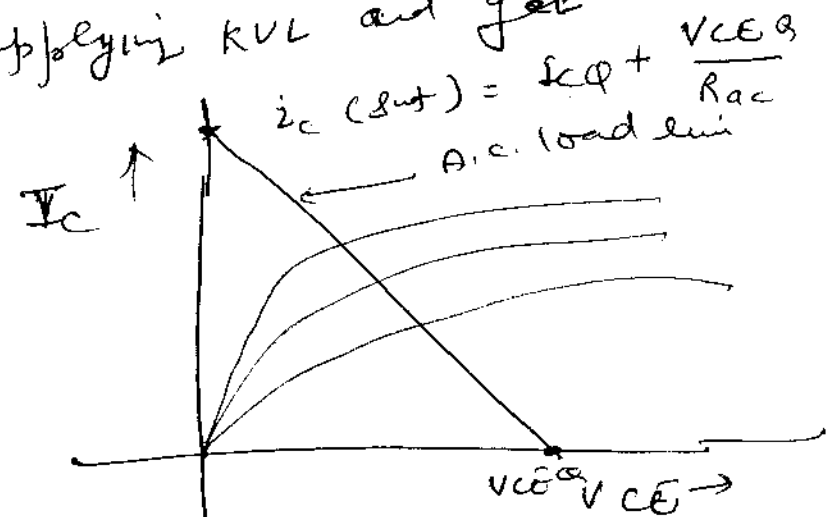 applying KVL and get
ic (sat) = ICQ + VCEQ / Rac
A.C. load line
IC ↑
VCEQ VCE →